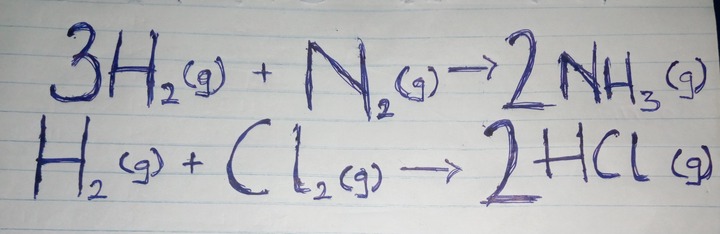 3H₂(g) + N₂(g) → 2NH₃(g)
H₂(g) + Cl₂(g) → 2HCl(g)